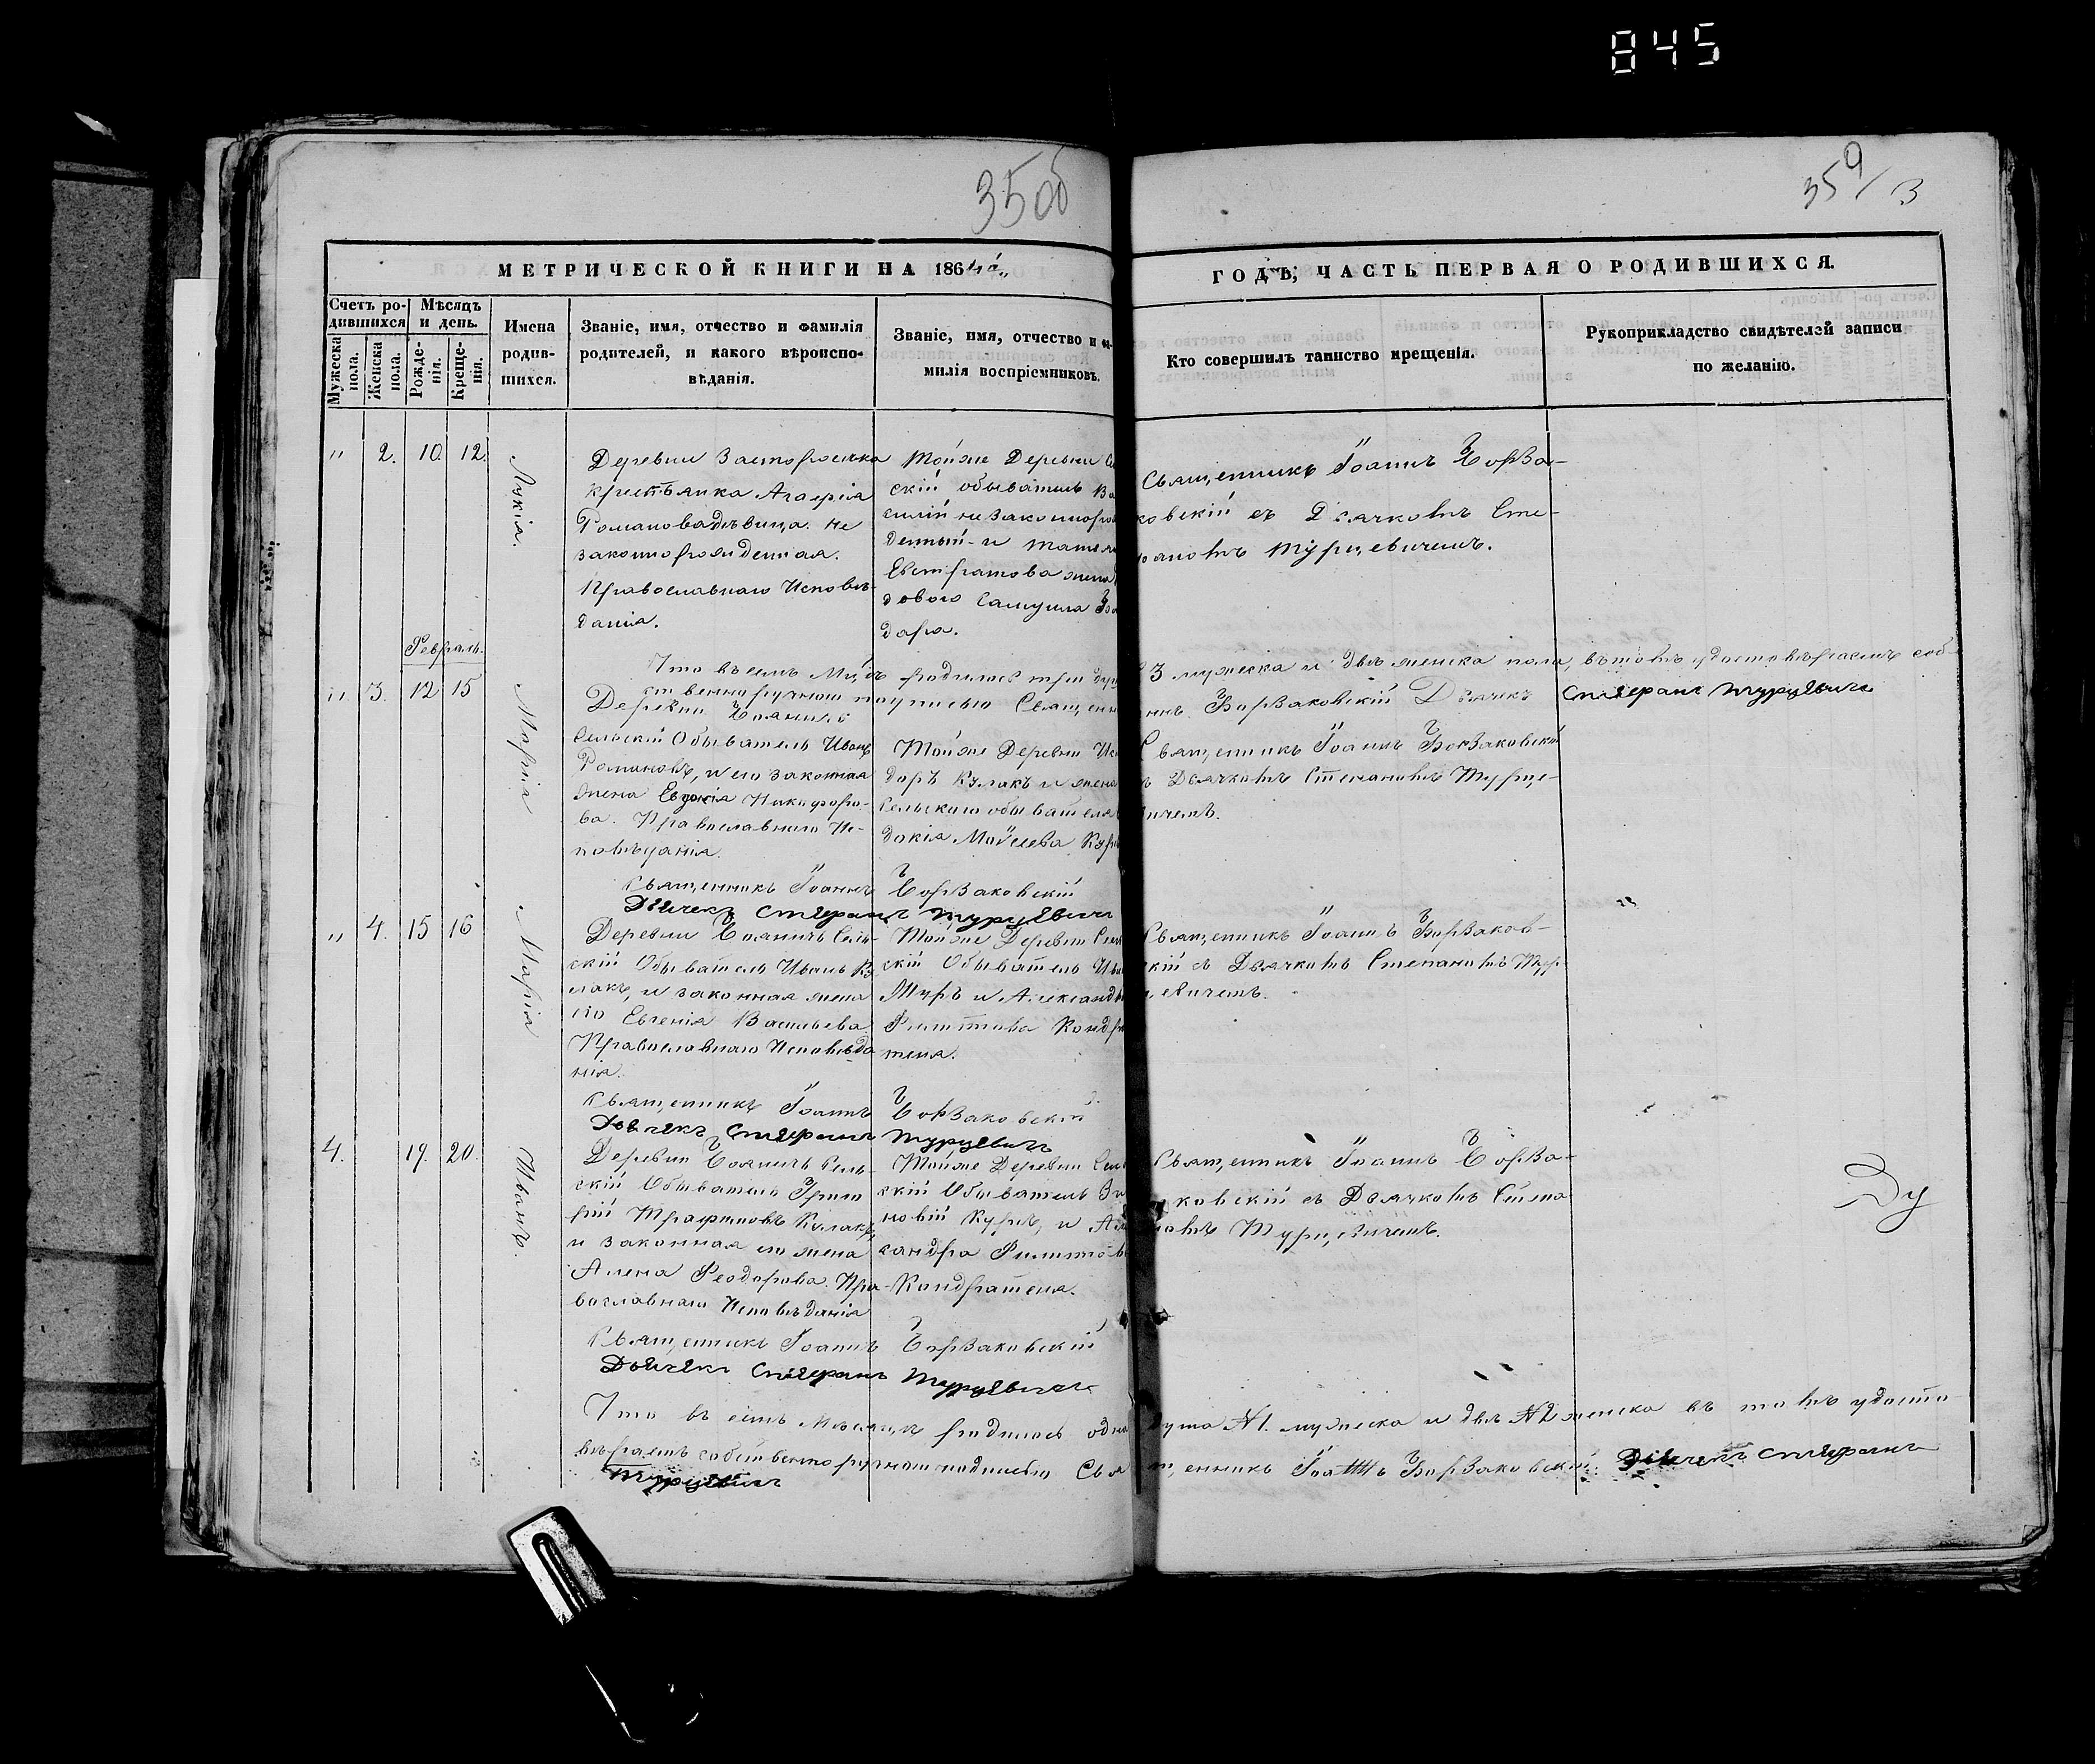 845
35об
35 9/3
МЕТРИЧЕСКОЙ КНИГИ НА 1864
ГОДЪ, ЧАСТЬ ПЕРВАЯ О РОДИВШИХСЯ.
Счетъ ро-
дившихся
Мужеска пола.
Женска пола.
Мѣсяцъ
и день.
Рожде-
нія.
Креще-
нія.
Имена
родив-
шихся.
Званіе, имя, отчество и фамилія
родителей, и какого вѣроиспо-
вѣданія.
Званіе, имя, отчество и фа-
милія воспріемниковъ.
Кто совершилъ таинство крещенія.
Рукоприкладство свидѣтелей записи
по желанію.
" 2. 10. 12.
Лукія.
Деревни
крестьянка Агафія
Романова дѣвица. не
законнорожденная.
Православнаго Исповѣ-
данія.
Тойже Деревни
скій обыватель Ва
силій незаконнорож
денный и
Евстратова жена
дового Самуила
дара.
Священникъ Іоаннъ Борза-
ковскій съ Дьячкомъ Сте-
паномъ Турцевичемъ.
Февраль.
Что въ семъ М-цѣ родилось три душ
3 мужеска и двѣ женска пола, въ томъ удостовѣряемъ соб-
ственноручною подписью Священ
Борзаковскій Дьячекъ Стефанъ Турцевичъ
" 3. 12 15
Марія
Деревни Боянычь
Сельскій Обыватель Иванъ
Романовъ, и его законная
жена Евдокія Никифоро-
ва. Православнаго Ис-
повѣданія.
Тойже Деревни
доръ Кулакъ и жена
Сельскаго обывателя
докія Мойсеева
Священникъ Іоаннъ Борзаковскій
съ Дьячкомъ Степаномъ Турце-
вичемъ.
Священникъ Іоаннъ Борзаковскій
Дьячекъ Стефанъ Турцевичъ
" 4. 15 16
Марія
Деревни Боянычь Сель-
скій Обыватель Иванъ Ку
лакъ, и законная жена
его Евгенія Васильева
Православнаго Исповѣда
нія.
Тойже Деревни Сель
скій Обыватель
и Александ
Филиппова Кондра
теня.
Священникъ Іоаннъ Борзаков-
скій съ Дьячкомъ Степаномъ Тур-
цевичемъ.
Священникъ Іоаннъ Борзаковскій
Дьячекъ Стефанъ Турцевичъ
4. 19. 20.
Иванъ.
Деревни Боянычь Сель-
скій Обыватель Григо
рій Трафимовъ Кулакъ,
и законная его жена
Алена Феодорова. Пра-
вославнаго Исповѣданія
Тойже Деревни Сель
скій Обыватель Зи
новій Курсъ, и Але
сандра Филиппова
Кондратеня.
Священникъ Іоаннъ Борза-
ковскій съ Дьячкомъ Степа
номъ Турцевичемъ.
Священникъ Іоаннъ Борзаковскій
Дьячекъ Стефанъ Турцевичъ
Что въ семъ Мѣсяцѣ родилось одна душа № 1. мужеска и двѣ № 2 женска въ томъ удосто
вѣряемъ собственноручною подписью Священникъ Іоаннъ Борзаковскій. Дьячекъ Стефанъ
Турцевичъ